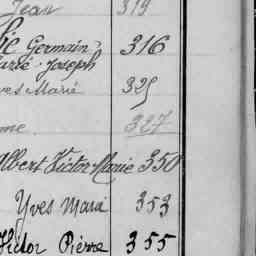 Jean 319
Germain 316
Marie-Joseph
Yves Marie 325
me 327
Albert Victor Marie 350
Yves Marie 353
Victor Pierre 355